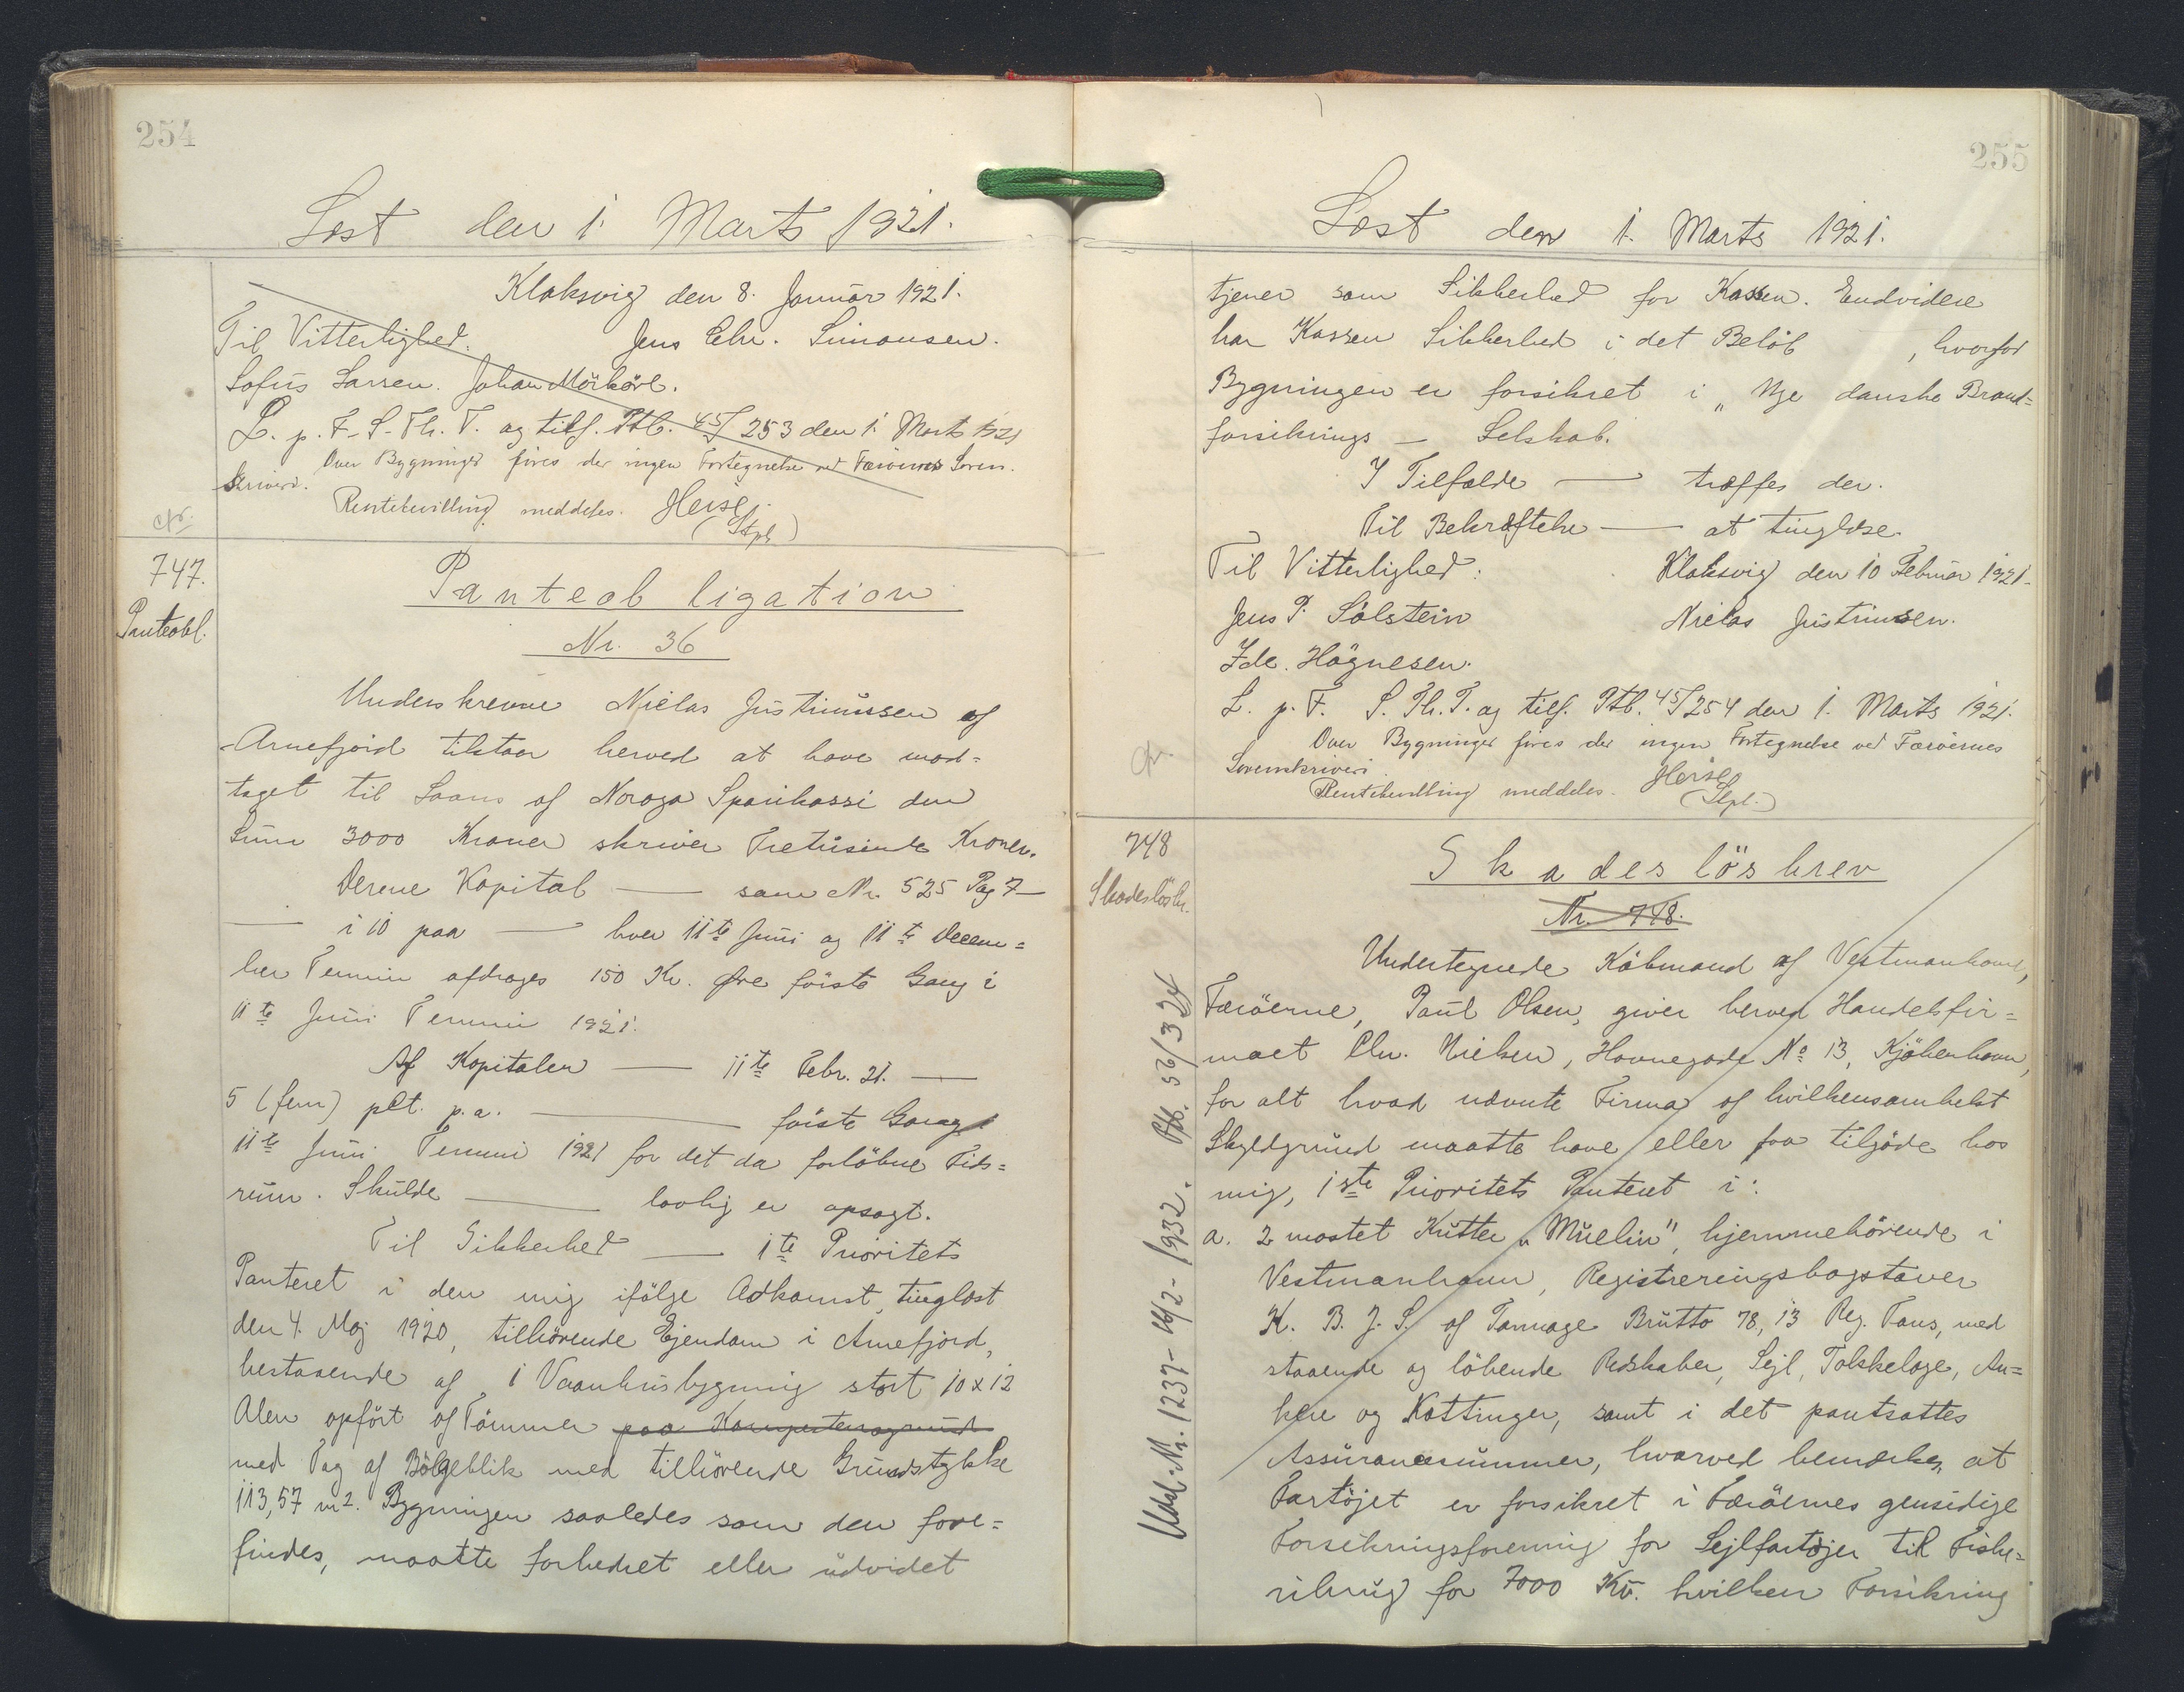 254
Læst den 1. Marts 1921.
Klaksvig den 8. Januar 1921.
Til Vitterlighed. Jens Chr. Simonsen.
Sofus Larsen. Johan Mörköre.
L. p. F. S. Th. T. og tilf. Ptb. 45/253 den 1. Marts 1921
Over Bygninger føres der ingen Fortegnelse ved Færöernes Soren-
skriveri.
Rentebevilling meddeles. Heise.
(Stpl)
cfr.
747.
Panteobl.
Panteobligation
Nr. 36
Underskrevne Niclas Justinussen af
Arnefjord tilstaar herved at have mod=
taget til Laans af Noroya Sparikassi den
Sum 3000 Kroner skriver Tretusinde Kroner.
Denne Kapital — som Nr. 525 Pag 7 —
— i 10 paa — hver 11te Juni og 11te Decem=
ber Termin afdrages 150 Kr. Øre første Gang i
11te Juni Termin 1921.
Af Kapitalen — 11te Febr. 21. —
5 (fem) pCt. p.a. — første Gang
11te Juni Termin 1921 for det da forløbne Tids=
rum. Skulde — lovlig er opsagt.
Til Sikkerhed — 1te Prioritets
Panteret i den mig ifölge Adkomst, tinglæst
den 4. Maj 1920, tilhørende Ejendom i Arnefjord,
bestaaende af 1 Vaanhusbygning stort 10 x 12
Alen opfört af Tömmer paa
med Tag af Bölgeblik med tilhørende Grundstykke
113,57 m2. Bygningen saaledes som den fore=
findes, maatte forbedret eller udvidet
255
Læst den 1. Marts 1921.
tjener som Sikkerhed for Kassen. Endvidere
har Kassen Sikkerhed i det Beløb , hvorfor
Bygningen er forsikret i „Nye danske Brand=
forsikrings — Selskab.
I Tilfælde — træffes der.
Til Bekræftelse — at tinglæse.
Til Vitterlighed: Klaksvig den 10 Februar 1921.
Jens P. Sólstein Niclas Justinussen.
Zde. Högnesen.
L. p. F. S. Th. T. og tilf. Ptb. 45/254 den 1. Marts 1921.
Over Bygninger føres der ingen Fortegnelse ved Færöernes
Sorenskriveri.
Rentebevilling meddeles. Heise
(Stpl.)
cfr.
748
Skadeslösbr.
Skadeslösbrev
Nr. 748.
Undertegnede Købmand af Vestmanhavn,
Færöerne, Paul Olsen, giver herved Handelsfir=
maet Chr. Nielsen, Havnegade No 13, Kjöbenhavn,
for alt hvad nævnte Firma af hvilkensomhelst
Skyldgrund maatte have eller faa tilgode hos
mig, 1ste Prioritets Panteret i:
a. 2 mastet Kutter „Muelin", hjemmehörende i
Vestmanhavn, Registreringsbogstaver
K. B. J. S. af Tonnage Brutto 78,13 Reg. Tons, med
staaende og löbende Redskaber, Sejl, Takkelage, An=
kere og Kættinger, samt i det pantsattes
Assurancesummer, hvorved bemærkes, at
Fartöjet er forsikret i Færöernes gensidige
Forsikringsforening for Sejlfartøjer til Fiske=
ribrug for 7000 Kr. hvilken Forsikring
Udsl. Nr. 1237- 16/2- 1932. Ptb. 56/324